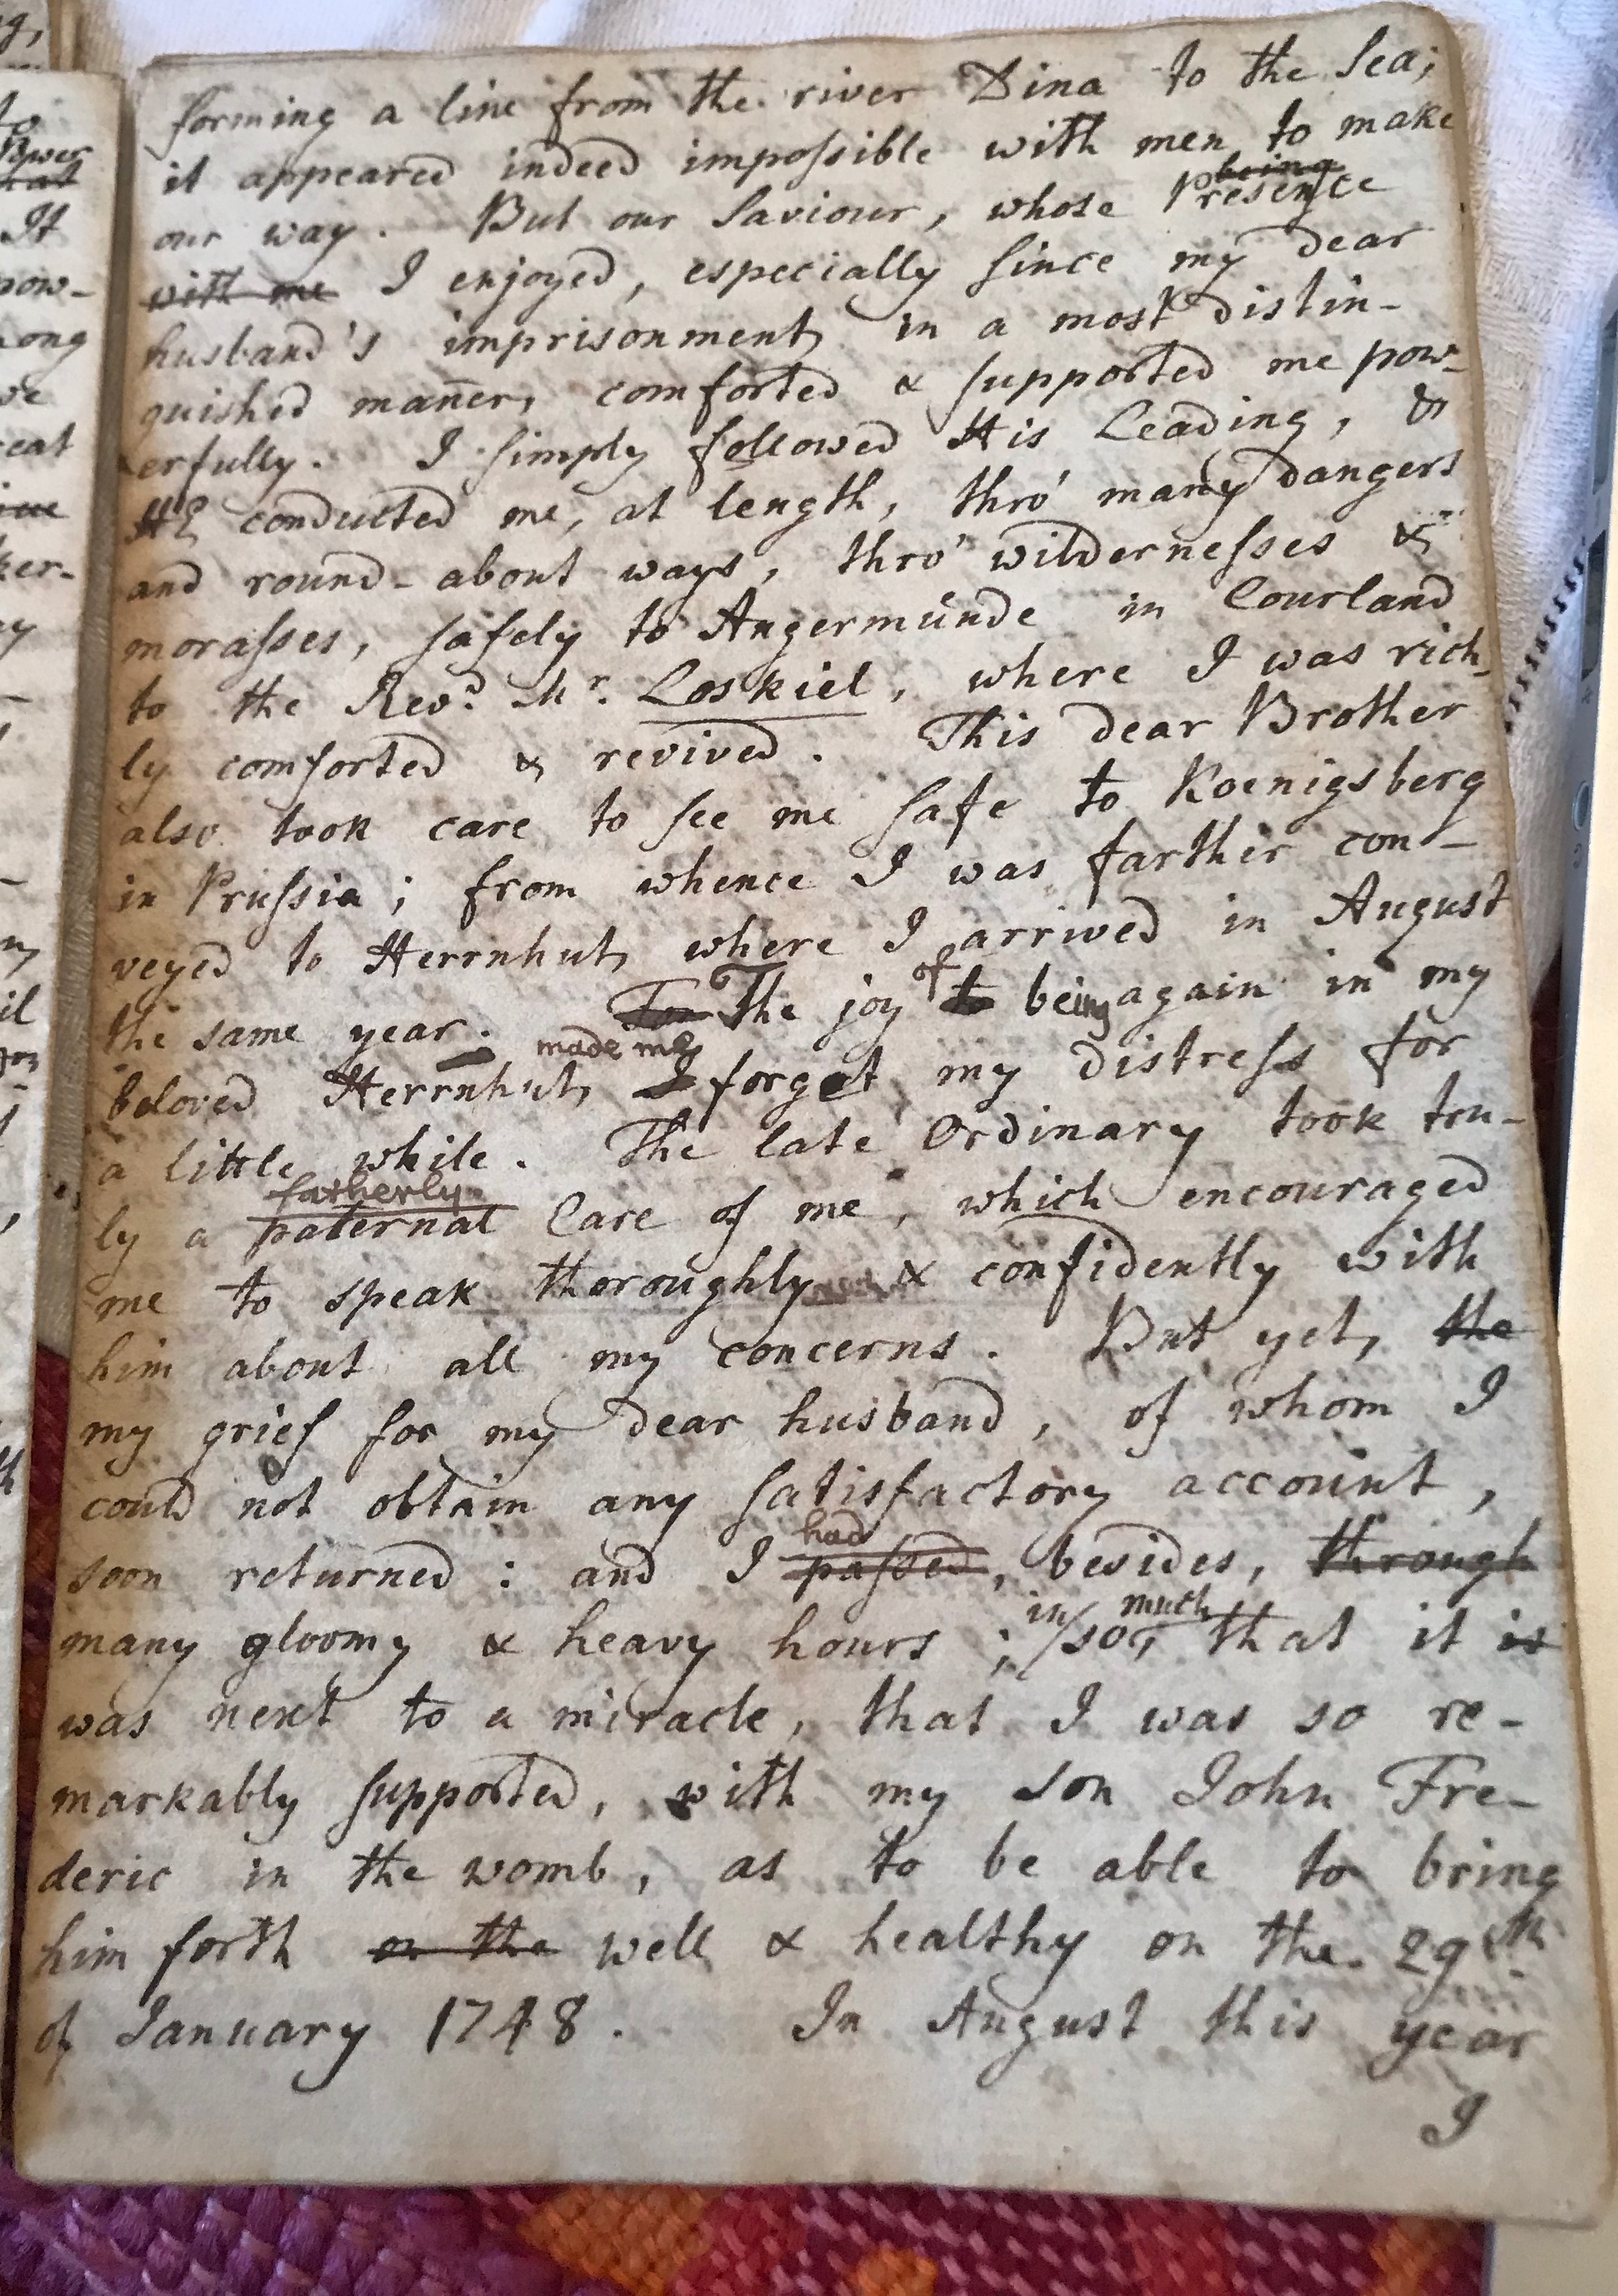 forming a line from the river Dina to the Sea;
it appeared indeed impoſsible with men, to make
our way. But our Saviour, whose Presence
being
with me I enjoyed, especially ſince my dear
husband's imprisonment, in a most distin-
guished mañer, comforted & ſupported me pow-
erfully. I ſimply followed His Leading, &
HE conducted me, at length, thro' many dangers
and round-about ways, thro' wilderneſses &
moraſses, ſafely to Angermünde in Courland
to the Revd. Mr. Loskiel, where I was rich-
ly comforted & revived. This dear Brother
also took care to ſee me ſafe to Koenigsberg
in Pruſsia; from whence I was farther con-
veyed to Herrnhut, where I arrived in August
the same year. For The joy of to being again in my
made me
beloved Herrnhut, I forget my distreſs for
a little while. The late Ordinary took tru-
fatherly
ly a paternal Care of me, which encouraged
me to speak thoroughly & confidently with
him about all my concerns. But yet, the
my grief for my dear husband, of whom I
could not obtain any ſatisfactory account,
had
soon returned: and I paſsed, besides, through
in much
many gloomy & heavy hours; so, that it is
was next to a miracle, that I was so re-
markably ſupported, with my son John Fre-
deric in the womb, as to be able to bring
him forth on the well & healthy on the 29th
of January 1748. In August this year
I